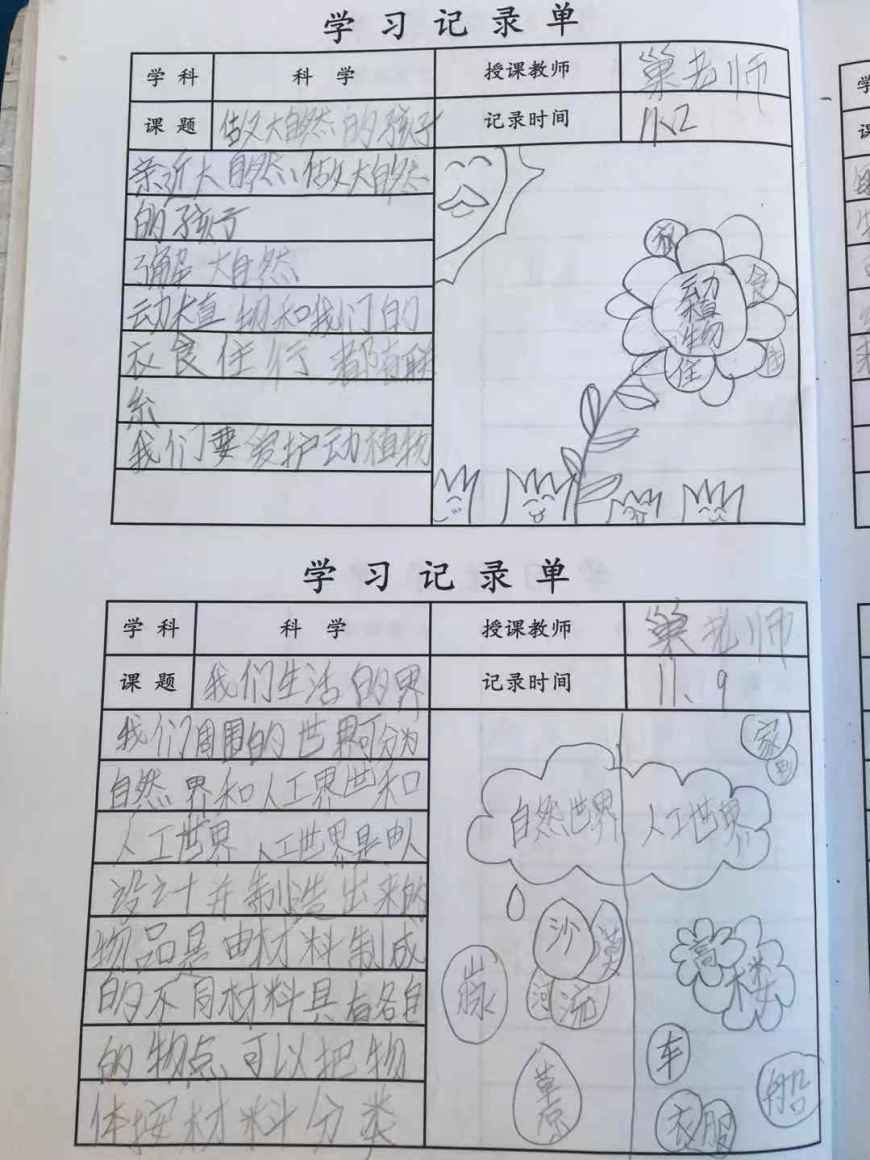 学习记录单
学科 科学 授课教师 巢老师
课题 做大自然的孩子 记录时间 11、2
亲近大自然、做大自然
的孩子
了解大自然
动植物和我们的
衣食住行都有联
系
我们要爱护动植物
动
植
物
衣
食
住
学习记录单
学科 科学 授课教师 巢老师
课题 我们生活的界 记录时间 11、9
我们周围的世界可分为
自然界和人工界世和
人工世界 人工世界是由人
设计并制造出来的
物品是由材料制成
的不同材料具有各自
的物点、可以把物
体按材料分类
自然世界 人工世界
家
沙漠
河流
草原
高楼
车
衣服
船